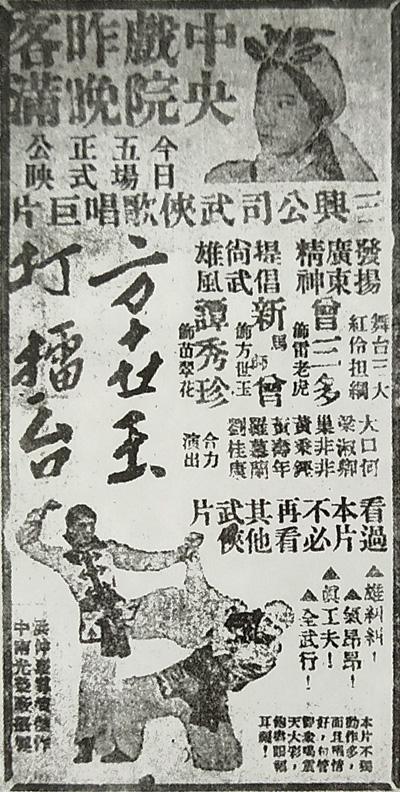 中央戲院昨晚客滿
今日五場正式公映
三興公司武俠歌唱巨片
方世玉
打擂台
發揚廣東精神
提倡尚武雄風
舞台三大紅伶担綱
曾三多
飾雷老虎
新馬師曾
飾方世玉
譚秀珍
飾苗翠花
大口何
梁淑卿
巢非非
黃秉鏗
黃壽年
羅慕蘭
劉桂康
合力演出
看過本片
不必再看其他武俠片
▲雄糾糾！
▲氣昂昂！
▲眞工夫！
▲全武行！
本片不獨
動作多，
而且唱情
好，包管
喝震
天大彩，
飽眼福
耳癮！